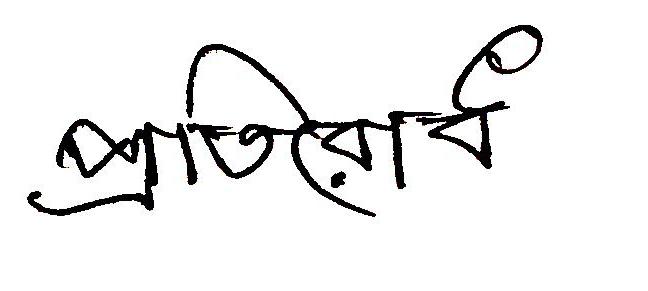 প্রতিরোধ